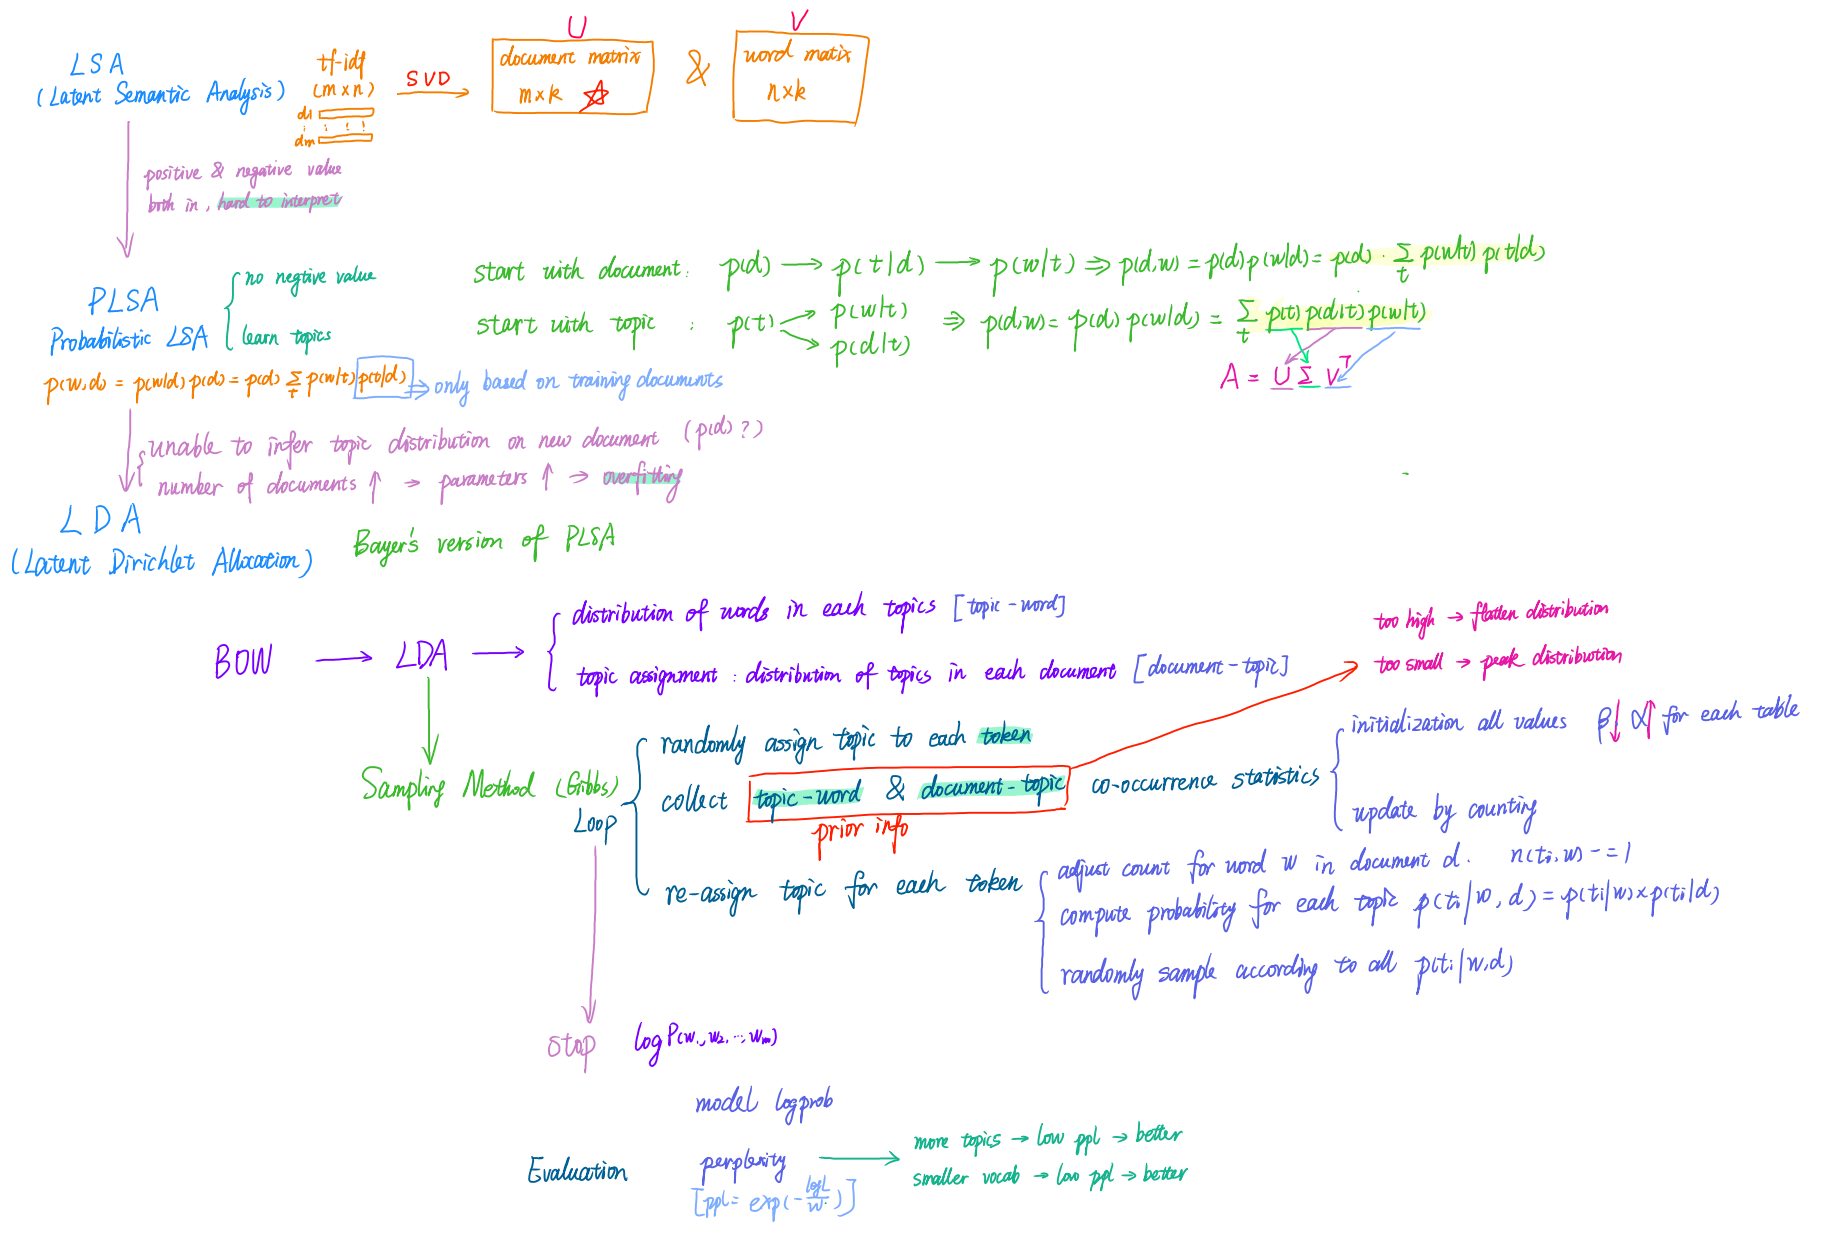 U
V
LSA
(Latent Semantic Analysis)
tf-idf
(m×n)
d1
dm
SVD
document matrix
m×k ☆
&
word matix
n×k
positive & negative value
both in, hard to interpret
PLSA
Probabilistic LSA
no negtive value
learn topics
start with document: p(d) → p(t|d) → p(w|t) ⇒ p(d,w) = p(d)p(w|d) = p(d) · Σ_t p(w|t) p(t|d)
start with topic : p(t) → p(w|t)
p(d|t)
⇒ p(d,w) = p(d) p(w|d) = Σ_t p(t) p(d|t) p(w|t)
A = U Σ V^T
p(w,d) = p(w|d) p(d) = p(d) Σ_t p(w|t) p(t|d) ⇒ only based on training documents
unable to infer topic distribution on new document (p(d)?)
number of documents ↑ → parameters ↑ → overfitting
LDA
(Latent Dirichlet Allocation)
Bayer's version of PLSA
BOW → LDA →
distribution of words in each topics [topic-word]
topic assignment: distribution of topics in each document [document-topic]
too high → flatten distribution
too small → peak distribution
Sampling Method (Gibbs)
Loop
randomly assign topic to each token
collect topic-word & document-topic co-occurrence statistics
prior info
initialization all values β↓, α↑ for each table
update by counting
re-assign topic for each token
adjust count for word w in document d. n(ti,w) -= 1
compute probability for each topic p(ti|w,d) = p(ti|w)×p(ti|d)
randomly sample according to all p(ti|w,d)
stop
log P(w1,w2,...,wm)
model logprob
Evaluation
perplexity
[ppl = exp(-logL/W)]
more topics → low ppl → better
smaller vocab → low ppl → better